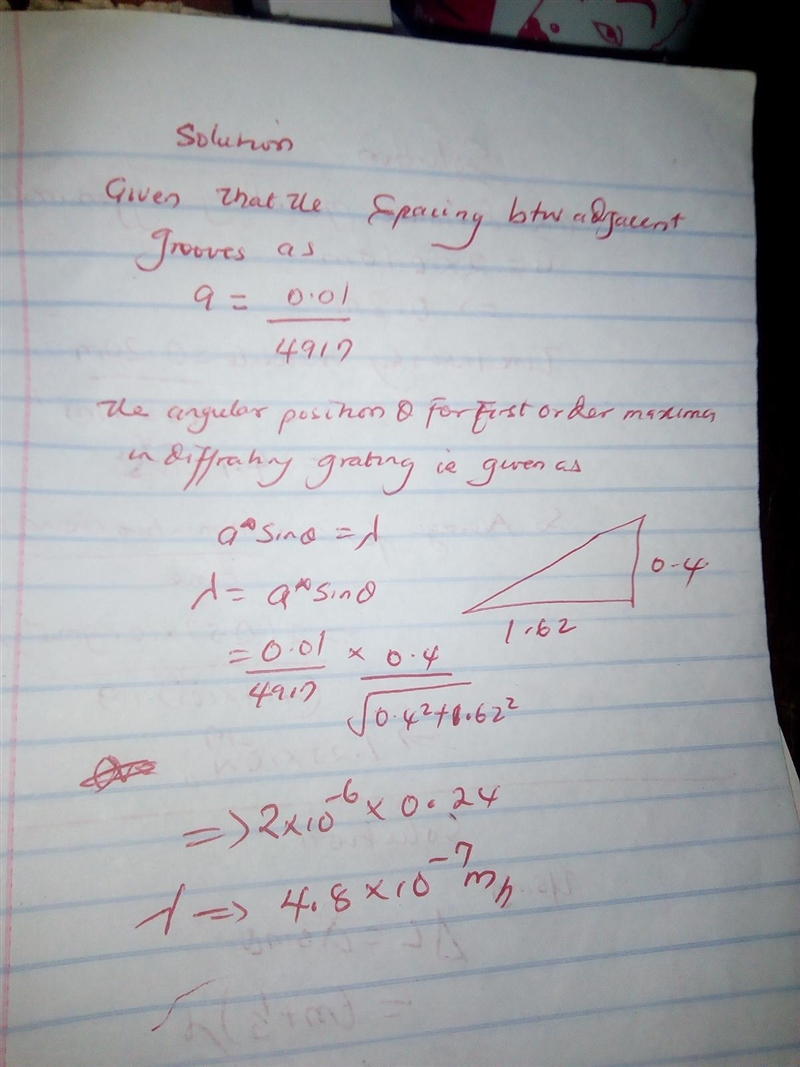 Solution
Given that the Spacing btw adjacent
grooves as
a = 0.01
4917
the angular position θ for first order maxima
in diffrating grating is given as
a* sinθ = λ
λ = a* sinθ
0.4
1.62
= 0.01 × 0.4
4917 √0.4²+1.62²
=> 2×10⁻⁶ × 0.24
λ => 4.8×10⁻⁷ m